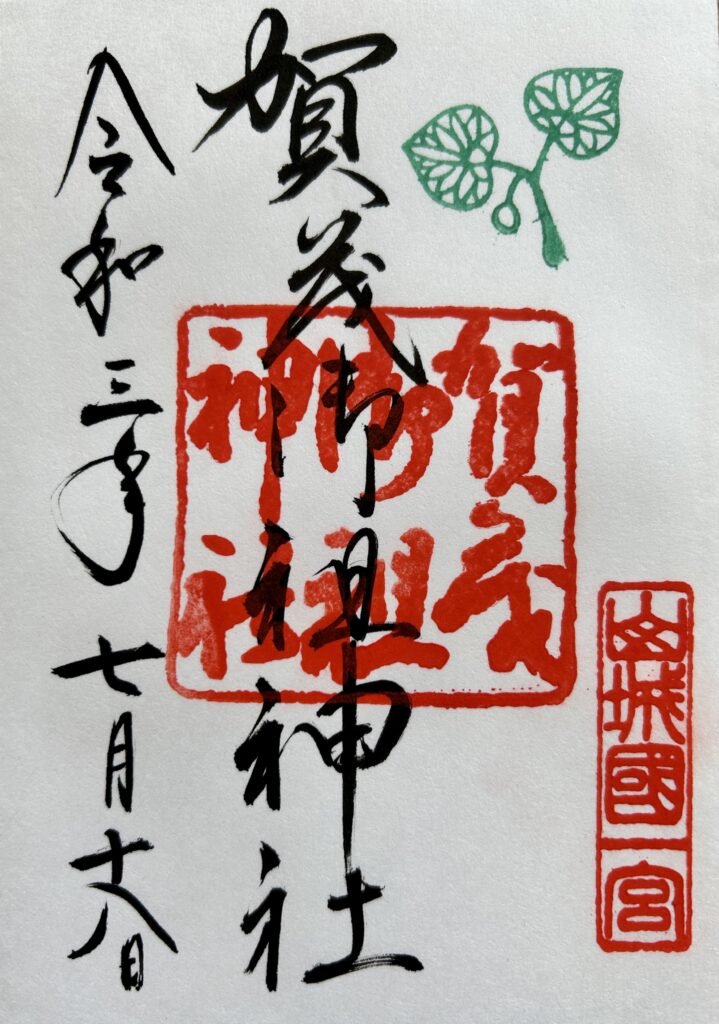 山城國一宮
賀茂御祖神社
賀茂御祖神社
令和三年七月十八日